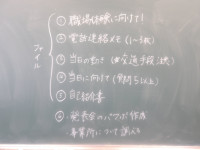 ファイル
① 職場体験に向けて!
② 電話連絡メモ (1〜5枚)
③ 当日の動き (#交通手段)
④ 当日に向けて (質問5以上)
⑤ 自己紹介書
⑥ 発表会のパワポ作成
事業所について調べる